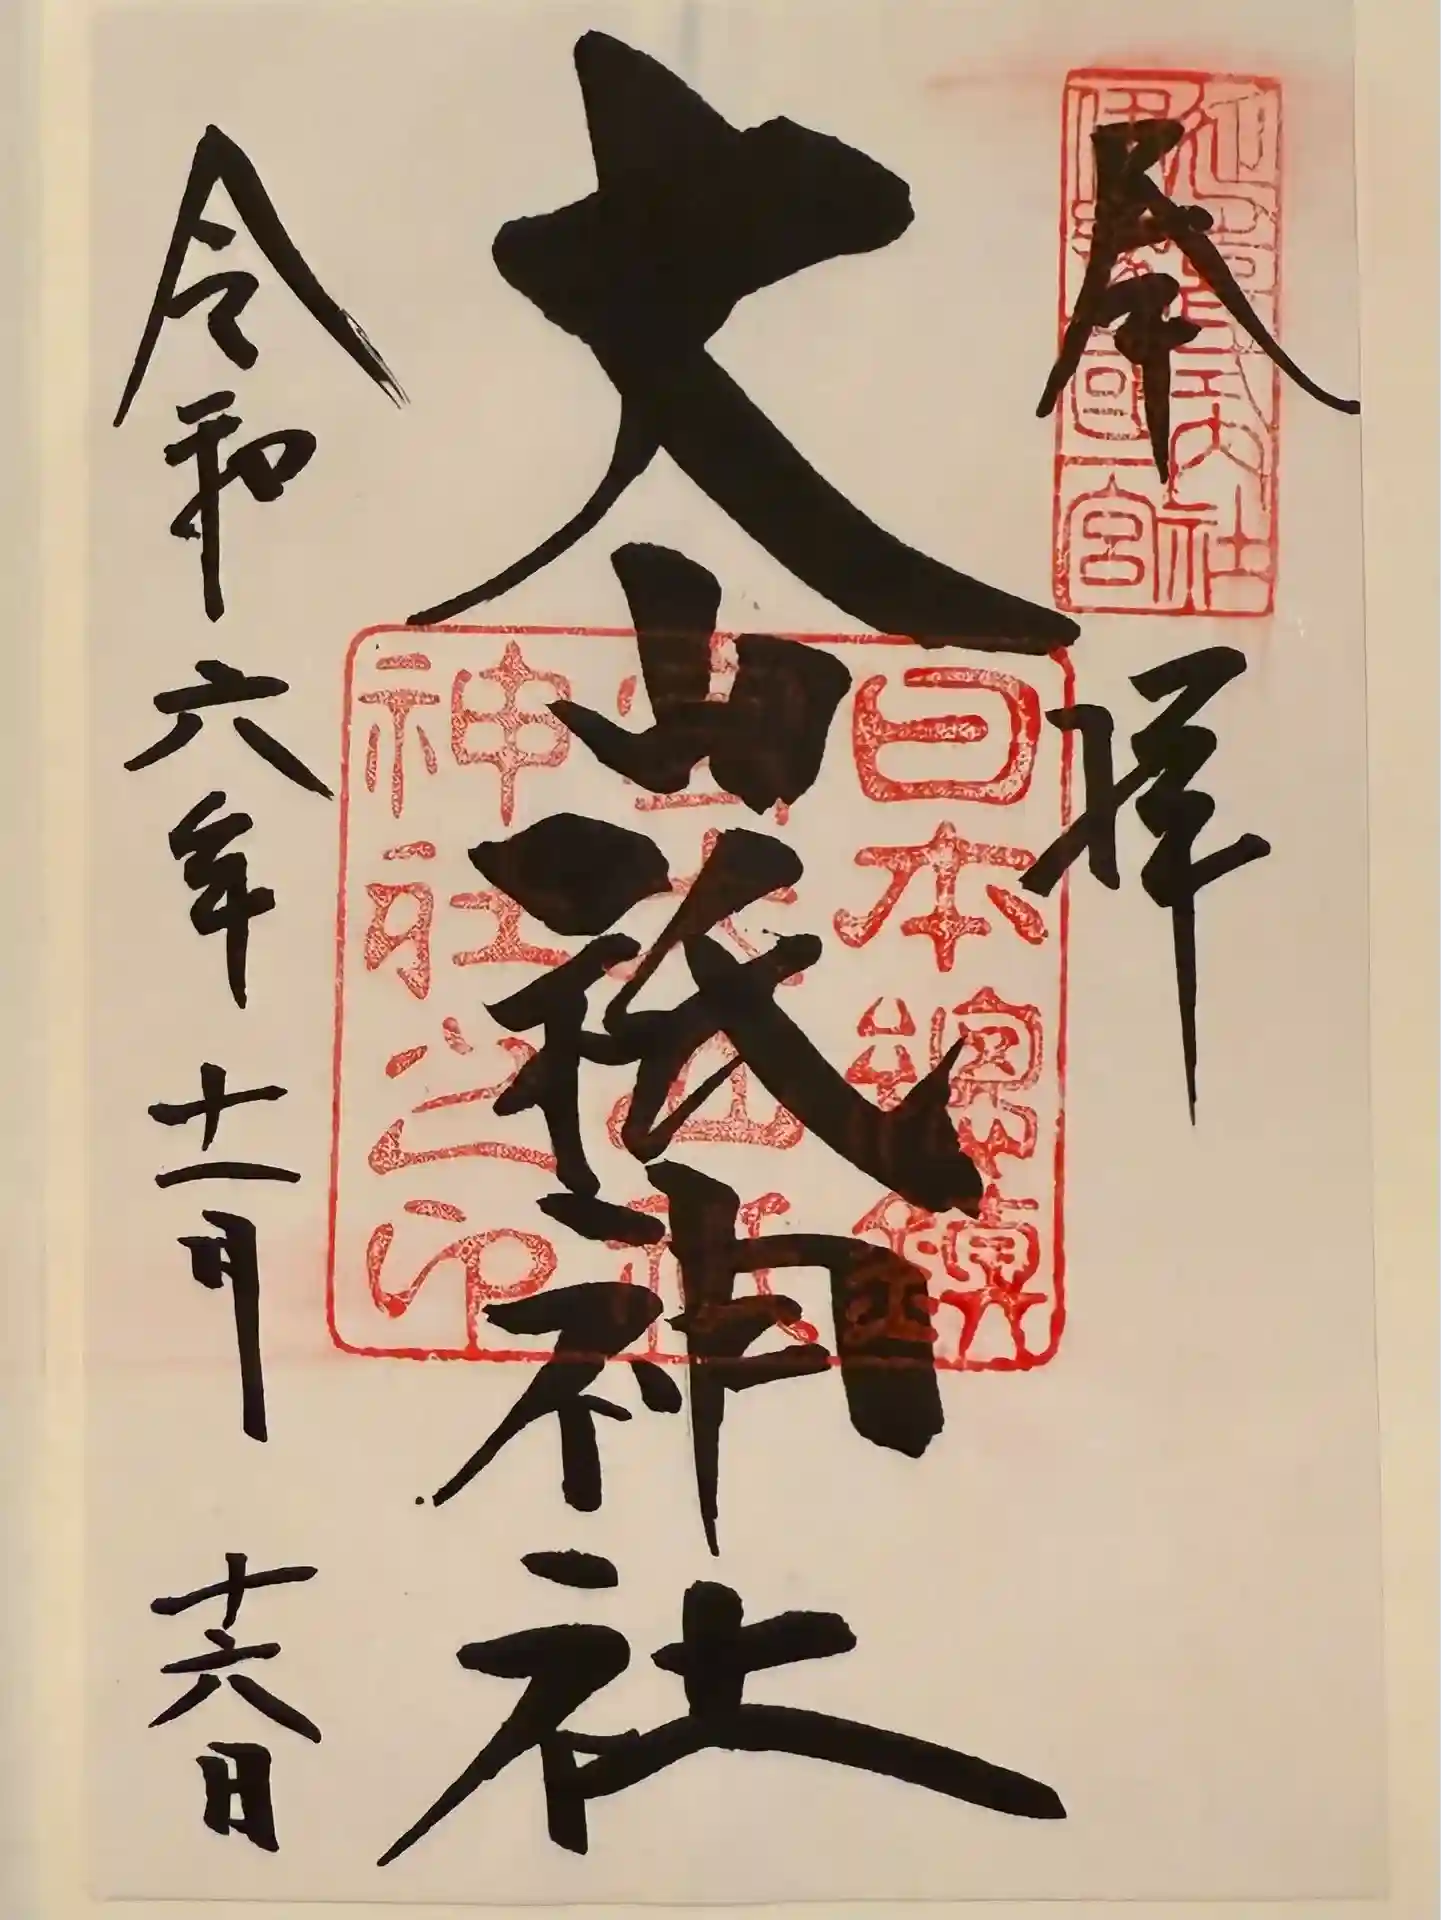 延喜式内社
伊豫國一宮
奉拝
大山祇神社
日本總鎮
守大山祇
神社之印
令和六年十一月十六日